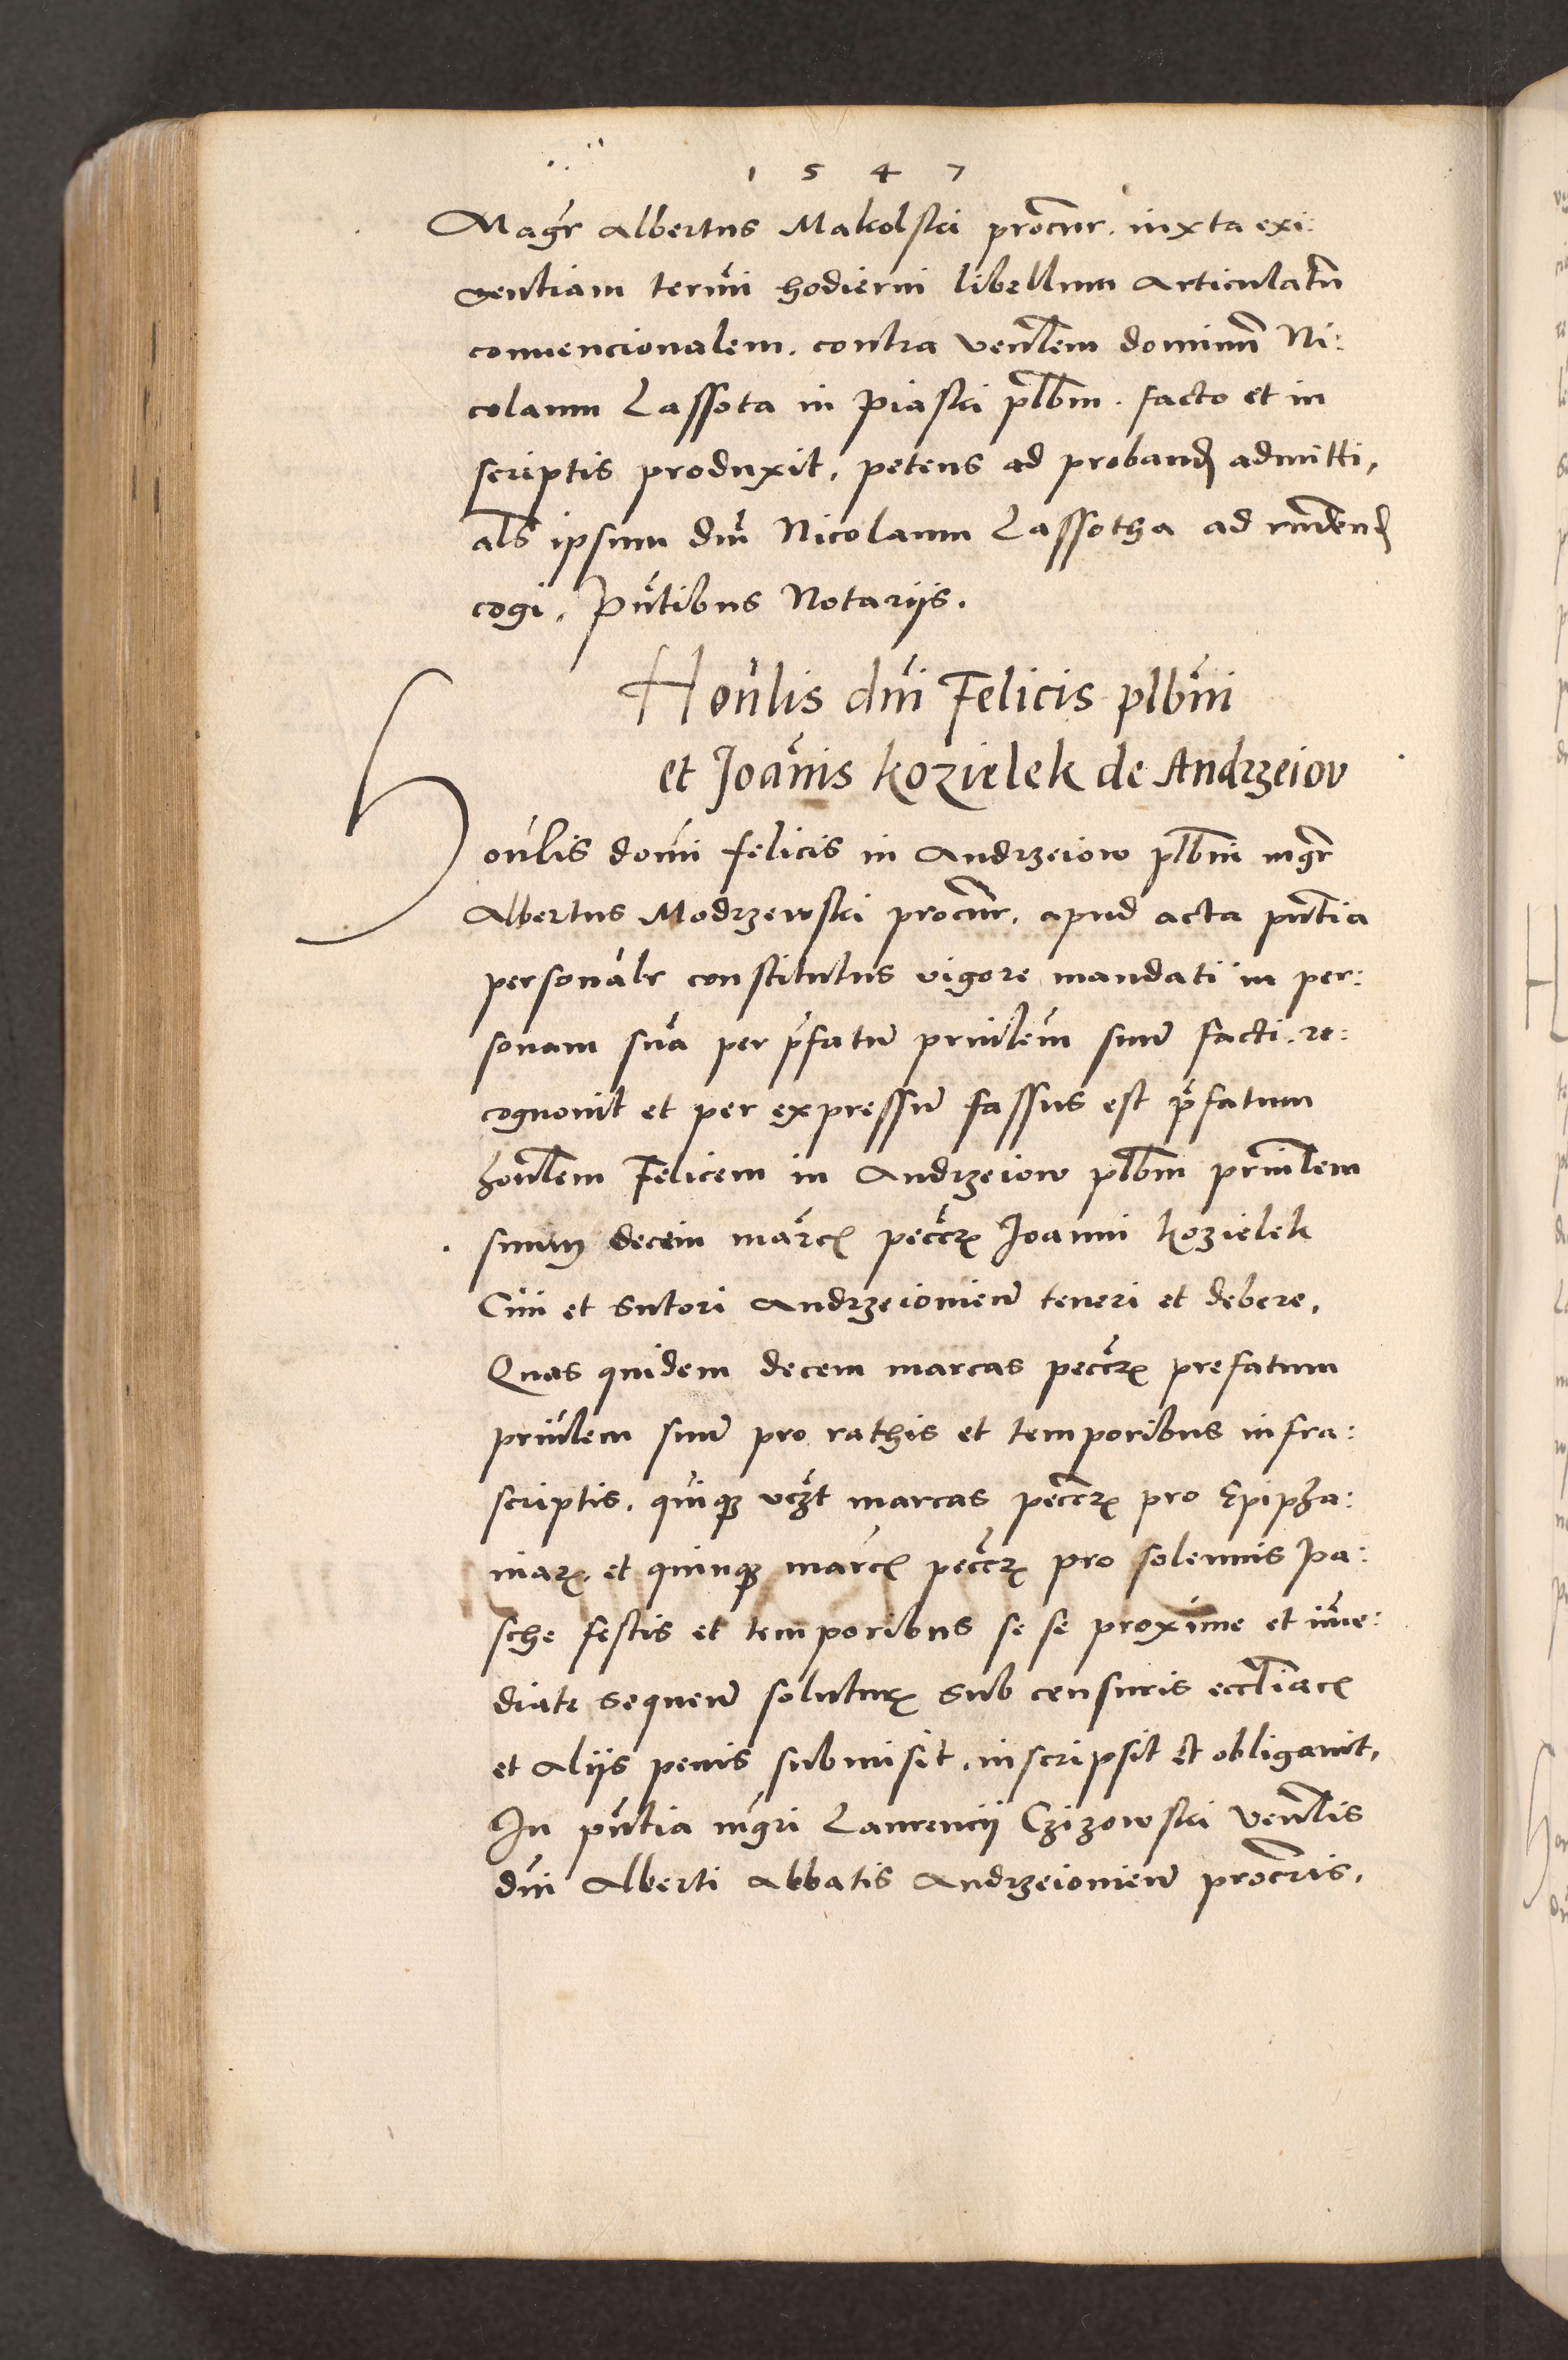 1 5 4 7
Magr̃ Albertus Makolski procur̃. iuxta exi:
gentiam termĩ hodierni libellum Articulatũ
conuencionalem. contra venl̃em dominũ Ni:
colaum Lassota in Piaski pl̃bm. facto et in
scriptis produxit, petens ad proband admitti,
al̃s ipsum dm̃ Nicolaum Lassotha ad rñdend
cogi. Pñtibus Notariis.
Honl̃is dñi Felicis plbñi
et Joañis Kozielek de Andrzeiov
Honl̃is domĩ Felicis in Andrzeiow pl̃bni mgr̃
Albertus Modrzewski procur̃. apud acta pñtia
personalr̃ constitutus vigore mandati in per:
sonam suã per p̃fatũ prinl̃em suũ facti. re:
cognouit et per expressũ fassus est p̃fatum
honl̃em Felicem in Andrzeiow pl̃bm prinl̃em
suum decem marc̃ pecc̃r Joanni Kozielek
Ciui et sutori Andrzeiouieñ teneri et debere,
Quas quidem decem marcas pecc̃r prefatum
prinl̃em suũ pro rathis et temporibus infra:
scriptis, quinq vcz̃t marcas pecc̃r pro Epipha:
niar, et quinq marc̃ pecc̃r pro solennis Pa:
sche festis et temporibus se se proxime et im̃e:
diate sequeñ solutur sub censuris eccl̃iac
et aliis penis submisit, inscripsit et obligauit,
In pñtia mgr̃i Laurencij Czizowski venl̃is
dñi Alberti Abbatis Andrzeiouieñ procr̃is,